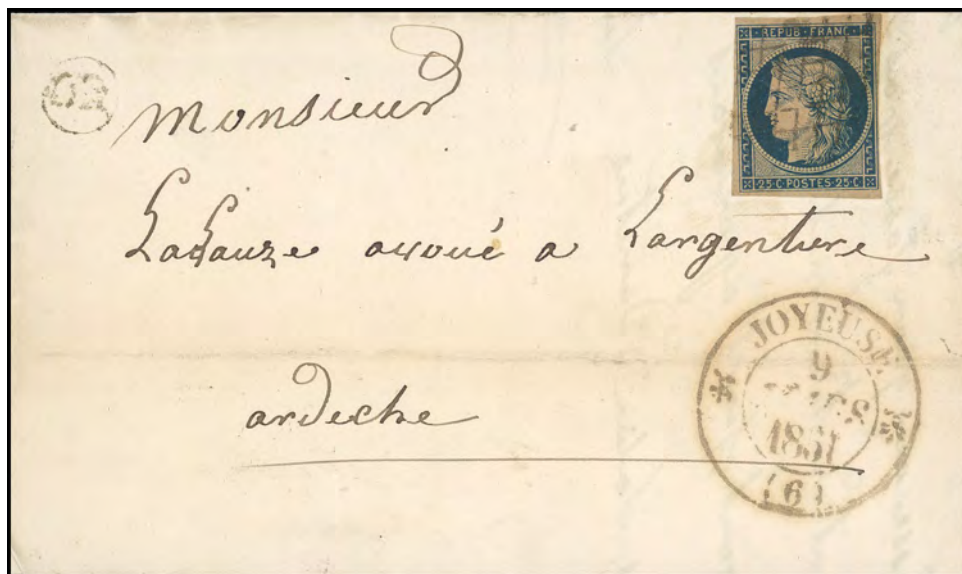 REPUB · FRANC
25 · C · POSTES · 25 · C
Monsieur
avoué a Largentiere
ardeche
JOYEUSE
9
MARS
1851
(6)